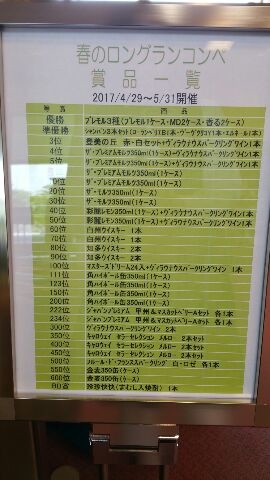 春のロングランコンペ
賞品一覧
2017/4/29～5/31開催
等 品 商 品
優勝 プレモル3種(プレモル1ケース・MD2ケース・香る2ケース)
準優勝
3位 登美の丘 赤・白セット+ヴィラナウスパークリングワイン1本
4位 ザ・プレミアムモルツ350ml(1ケース)+ヴィラナウスパークリングワイン1本
5位 ザ・プレミアムモルツ350ml(1ケース)+ヴィラナウスパークリングワイン1本
ザ・プレミアムモルツ350ml(1ケース)
ザ・プレミアムモルツ350ml(1ケース)
20位 ザ・モルツ350ml(1ケース)
30位 ザ・モルツ350ml(1ケース)
40位 350ml(1ケース)+ヴィラナウスパークリングワイン1本
50位 350ml(1ケース)+ヴィラナウスパークリングワイン1本
60位 白州ウイスキー 1本
70位 白州ウイスキー 1本
80位 知多ウイスキー 2本
90位 知多ウイスキー 2本
100位 マスターズドリーム24入+ヴィラナウスパークリングワイン1本
111位 角ハイボール缶350ml(1ケース)
123位 角ハイボール缶350ml(1ケース)
150位 角ハイボール缶350ml(1ケース)
200位 角ハイボール缶350ml(1ケース)
222位 ジャパンプレミアム 甲州&マスカットベリーAセット 各1本
234位 ジャパンプレミアム 甲州&マスカットベリーAセット 各1本
300位 ヴィラナウスパークリングワイン 2本
350位 キャロウェイ セラーセレクション メルロー 2本セット
400位 キャロウェイ セラーセレクション メルロー 2本セット
450位 キャロウェイ セラーセレクション メルロー 2本セット
500位 フルール・ド・フランススパークリング 白・ロゼ 各1本
550位 金麦350缶(ケース)
600位 金麦350缶(1ケース)
BB賞 (まむし入焼酎) 1本